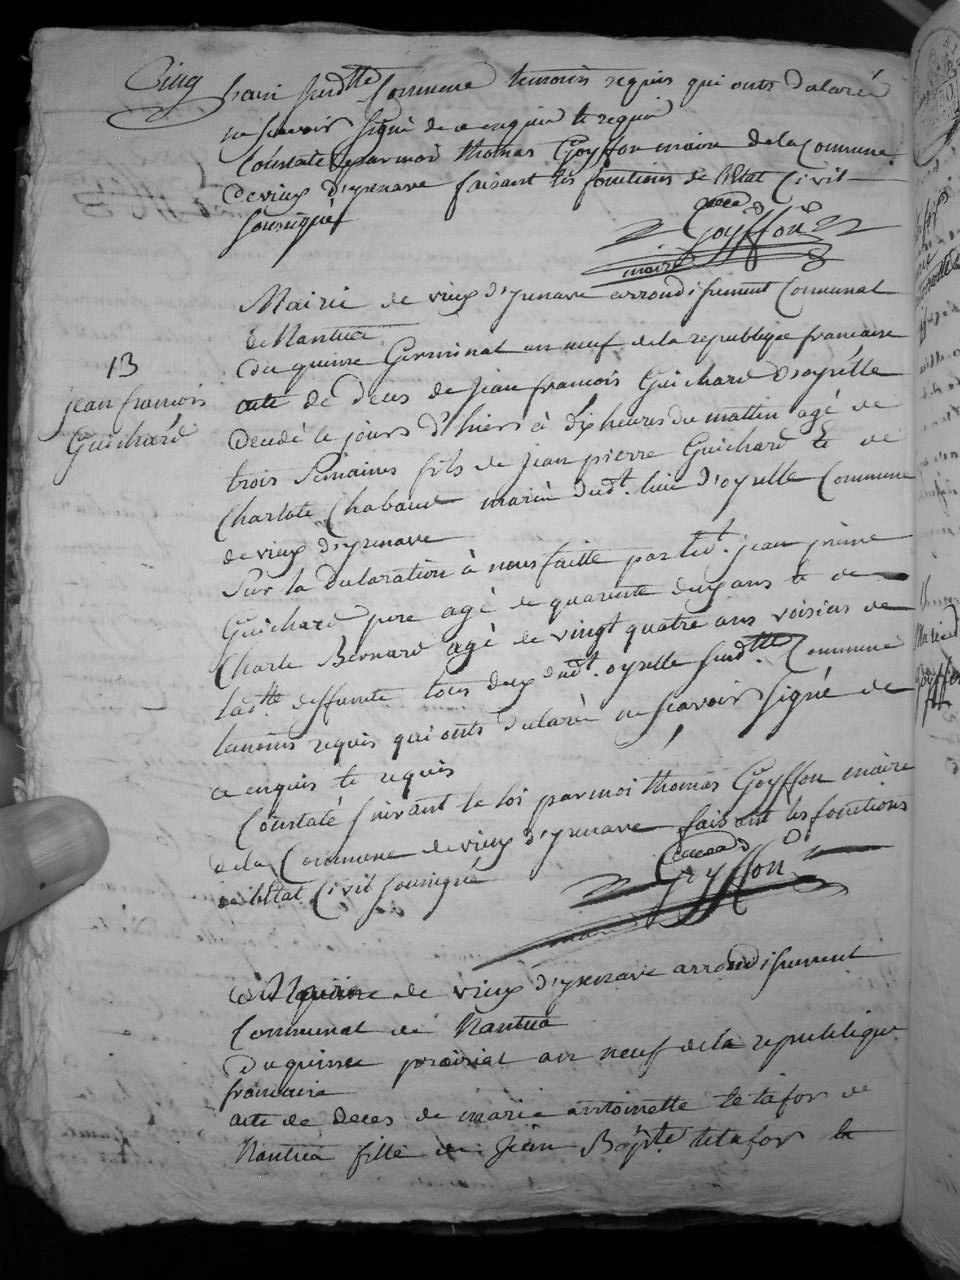 Cinq
susdtte Commune temoins requis qui onts declarée
ne scavoir signé de ce enquie et requie
Constaté par moi thomas Goyffon maire de la Commune
de vieux d'yzenave faisant les fonctions de l'Etat Civil
soussigné
Goyffon
maire
Mairie de vieux d'yzenave arrondissement Communal
de Nantua
du quinze Germinal an neuf de la republique francaise
13
jean francois
Guichard
acte de deces de jean francois Guichard d'oyselle
decedé le jours d'hiers à dix heures du mattin agé de
trois semaines fils de jean pierre Guichard et de
Charlote Chabaud mariée dudt. lieu d'oyselle Commune
de vieux d'yzenave
Sur la declaration à nous faitte par ledt. jean pierre
Guichard pere agé de quarante deux ans et de
Charle Bernard agé de vingt quatre ans voisins de
ladtte deffunte tous deux dudt. oyselle susdtte Commune
temoins requis qui onts declaré ne scavoir signé de
ce enquis et requis
Constaté suivant la loi par moi thomas Goyffon maire
de la Commune de vieux d'yzenave faisant les fonctions
de l'Etat Civil soussigné
Goyffon
maire
Mairie de vieux d'yzenave arrondissement
Communal de Nantua
Du quinze prairial an neuf de la republique
francaise
acte de deces de marie antoinette de
Nantua fille de jean Bapte. et